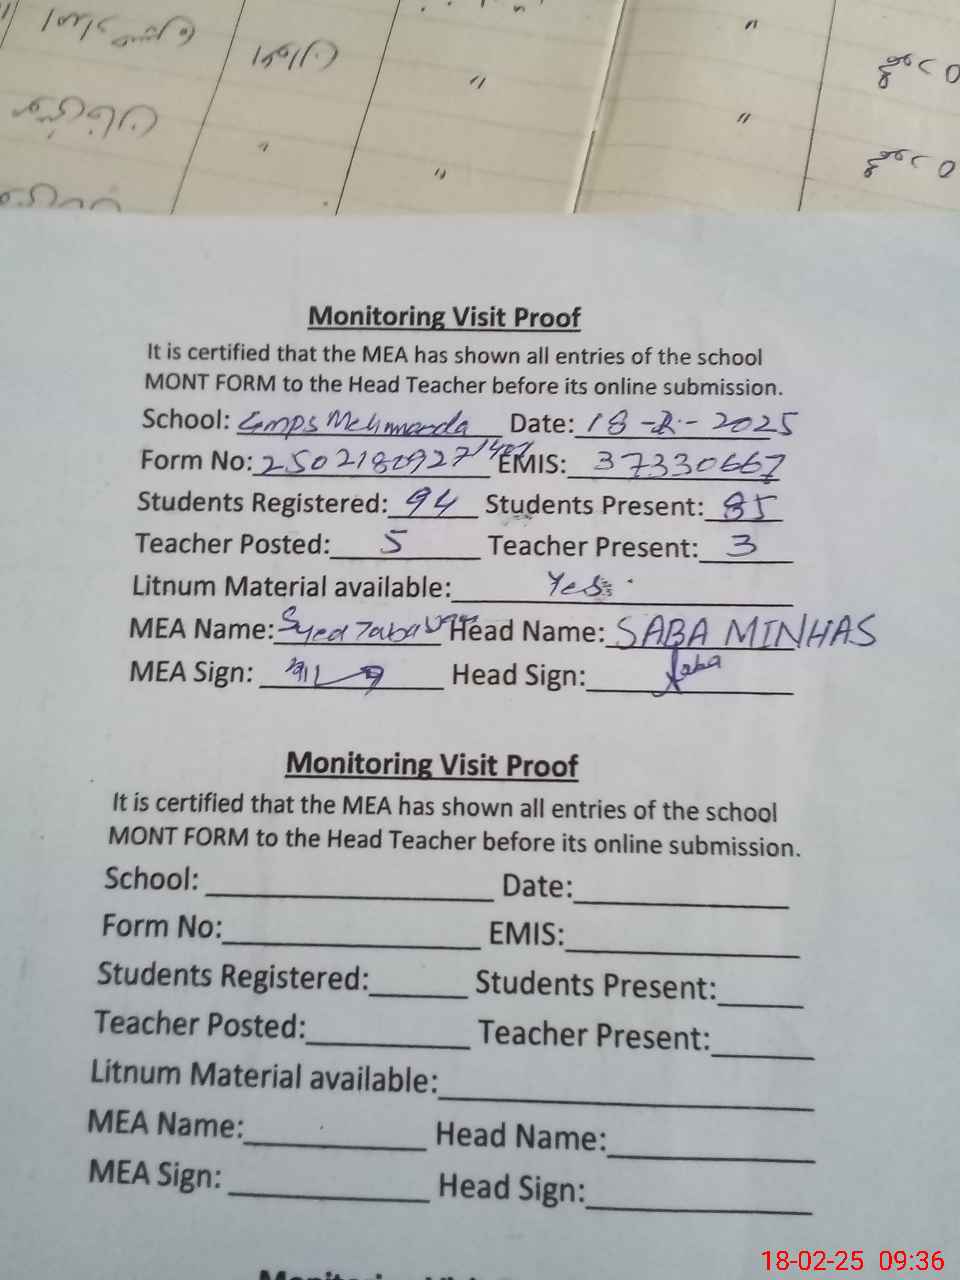 Monitoring Visit Proof
It is certified that the MEA has shown all entries of the school
MONT FORM to the Head Teacher before its online submission.
School: Gmps Mehmanda Date: 18-2-2025
Form No: 2502180927 EMIS: 37330667
Students Registered: 94 Students Present: 85
Teacher Posted: 5 Teacher Present: 3
Litnum Material available: Yes
MEA Name: Syed Head Name: SABA MINHAS
MEA Sign: Head Sign: Saba
Monitoring Visit Proof
It is certified that the MEA has shown all entries of the school
MONT FORM to the Head Teacher before its online submission.
School: Date:
Form No: EMIS:
Students Registered: Students Present:
Teacher Posted: Teacher Present:
Litnum Material available:
MEA Name: Head Name:
MEA Sign: Head Sign:
18-02-25 09:36